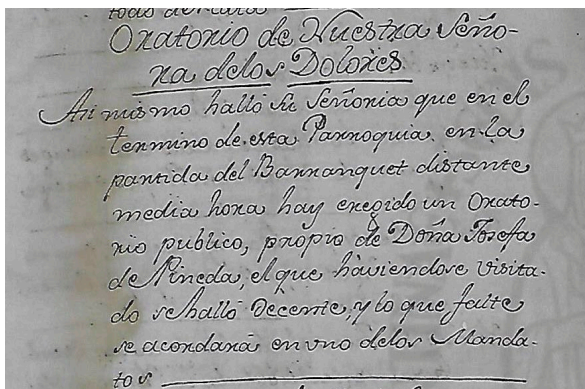 Oratorio de Nuestra Seño-
ra delos Dolores
Asi mismo halló su Señoria que en el
termino de esta Parroquia en la
partida del Barranquet distante
media hora hay eregido un Orato-
rio publico, propio de Doña Josefa
de Pineda, el que haviendose visita-
do se halló Decente, y lo que falte
se acordará en uno delos Manda-
tos